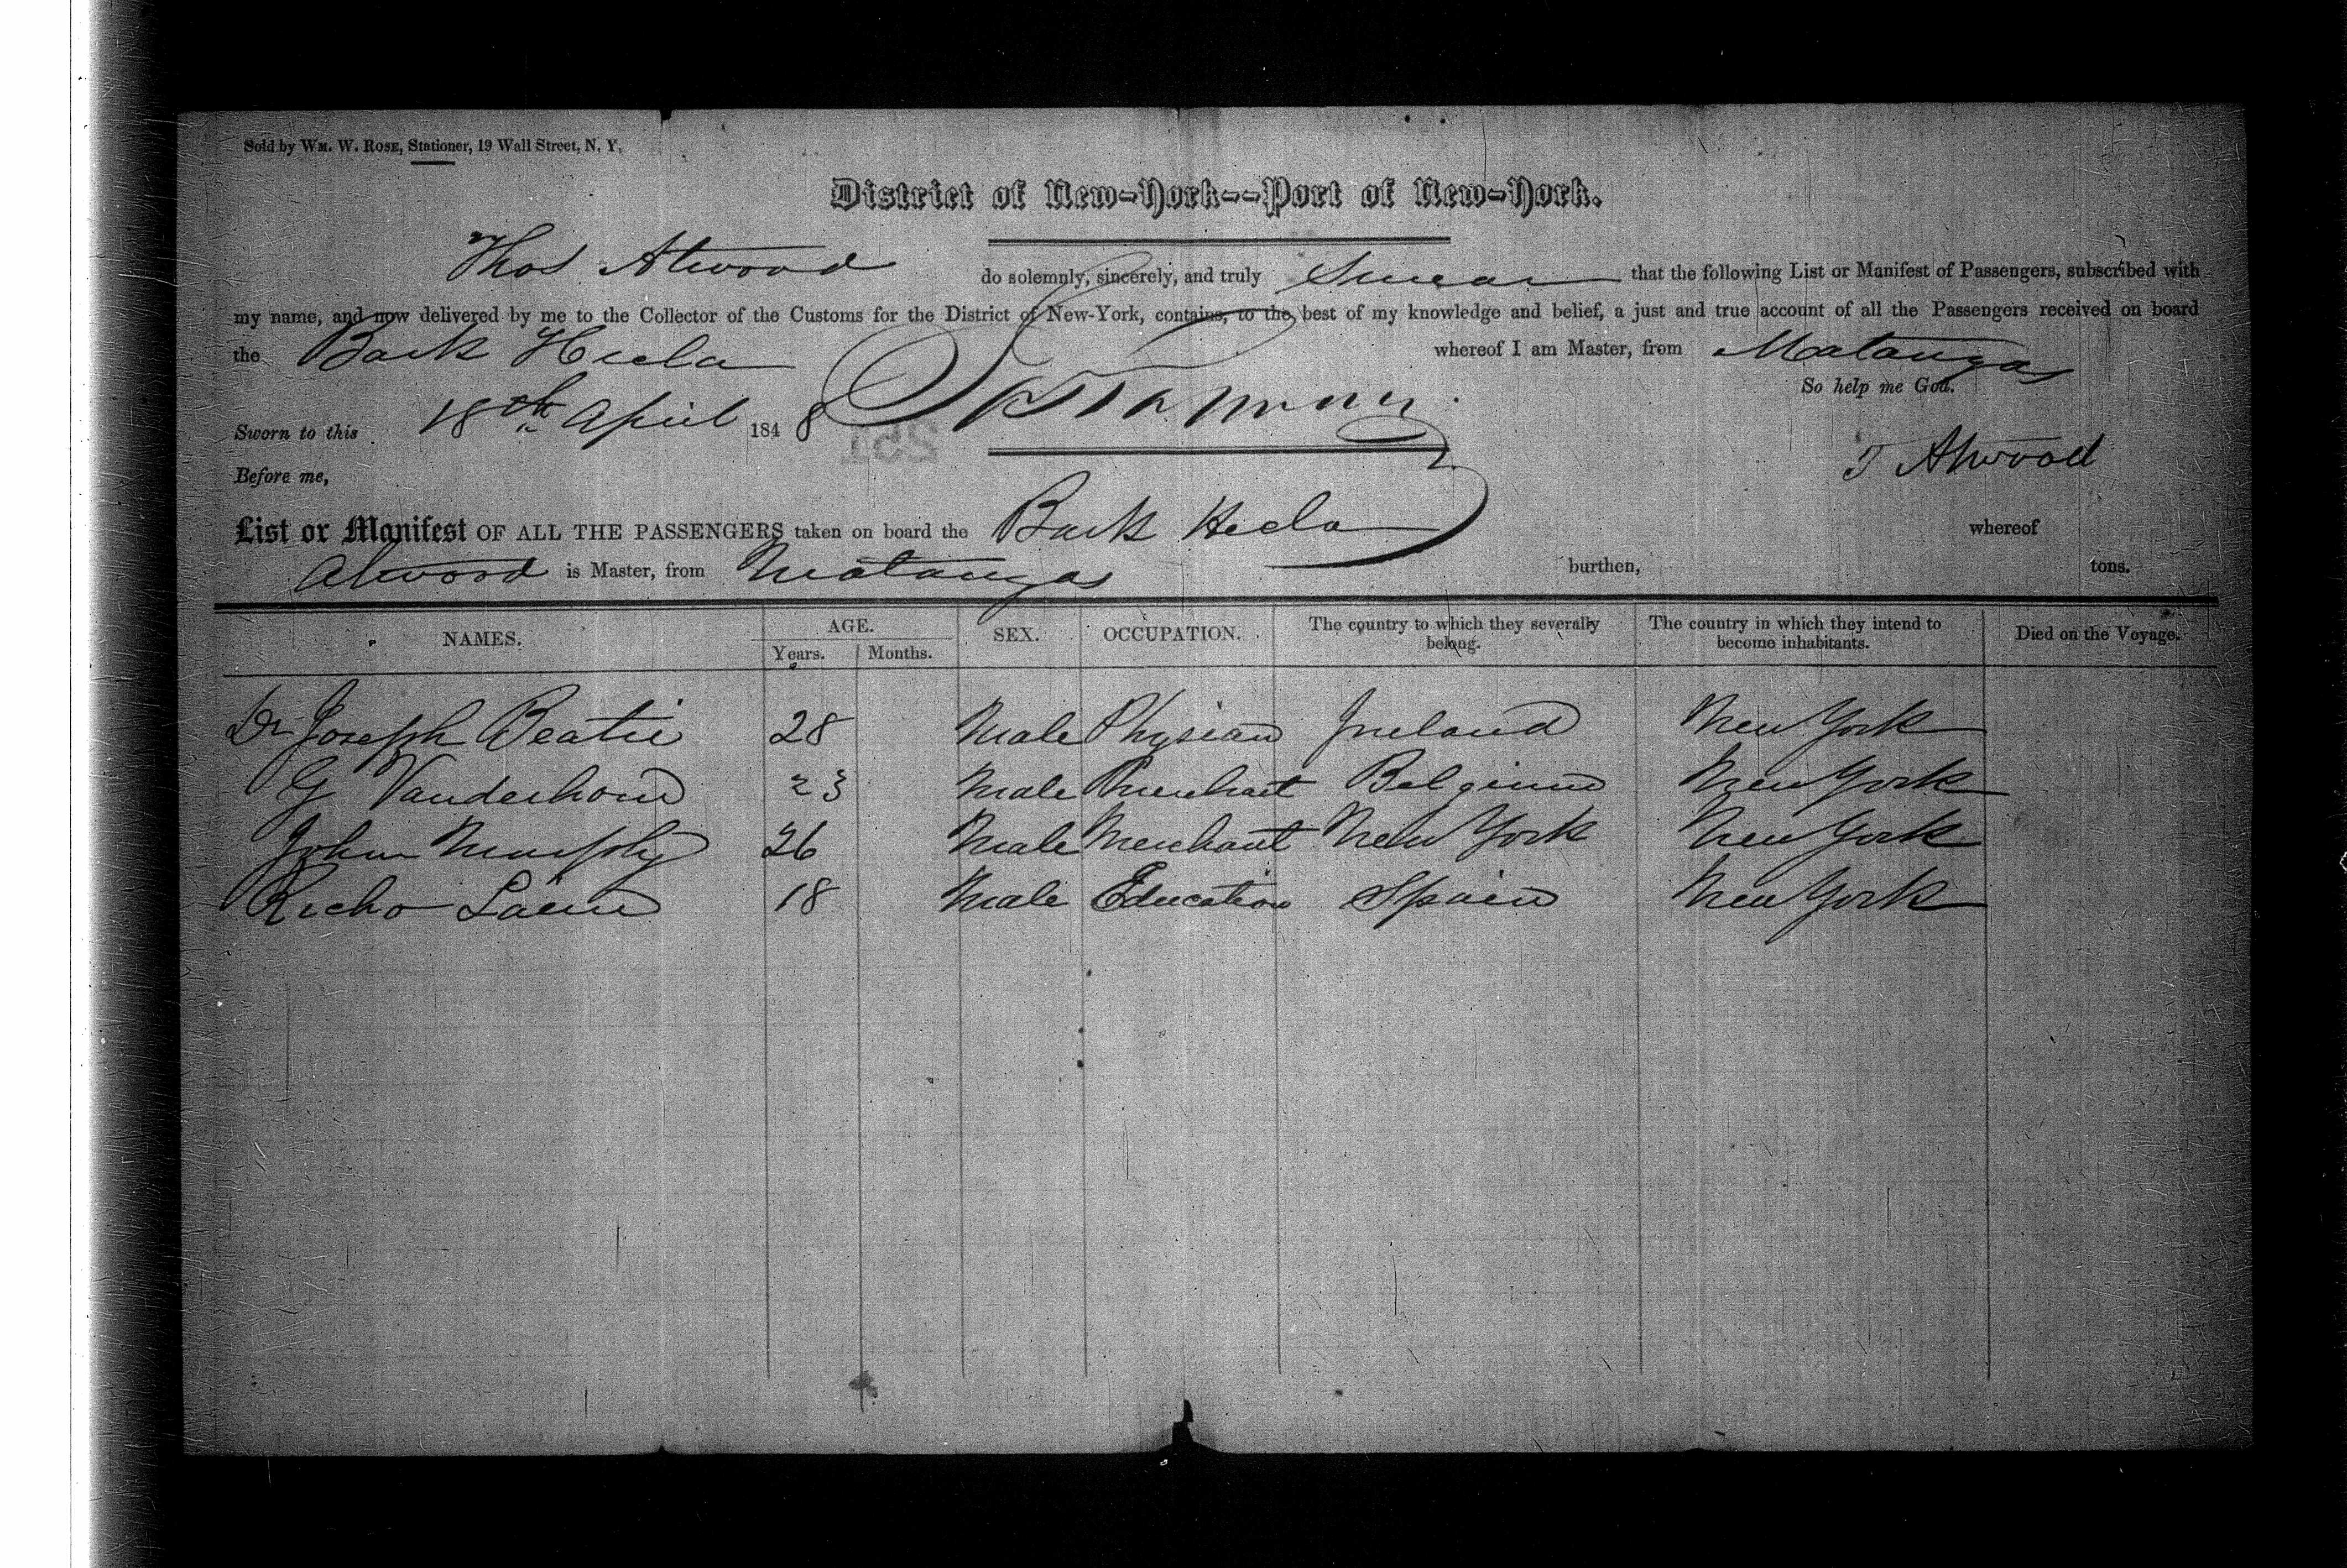 Sold by WM. W. ROSE, Stationer, 19 Wall Street, N. Y.
District of New-York--Port of New-York.
Thos Atwood do solemnly, sincerely, and truly Swear that the following List or Manifest of Passengers, subscribed with
my name, and now delivered by me to the Collector of the Customs for the District of New-York, contains, to the best of my knowledge and belief, a just and true account of all the Passengers received on board
the Bark Hecla whereof I am Master, from Matanzas
So help me God.
Sworn to this 18th April 1848
251
T Atwood
Before me,
List or Manifest OF ALL THE PASSENGERS taken on board the Bark Hecla whereof
Atwood is Master, from Matanzas burthen, tons.
NAMES. AGE. Years. Months. SEX. OCCUPATION. The country to which they severally belong. The country in which they intend to become inhabitants. Died on the Voyage.
Dr Joseph Beatie 28 Male Physian Ireland New York
G 23 Male Merchant Belgium New York
John Murphy 26 Male Merchant New York New York
18 Male Education Spain New York